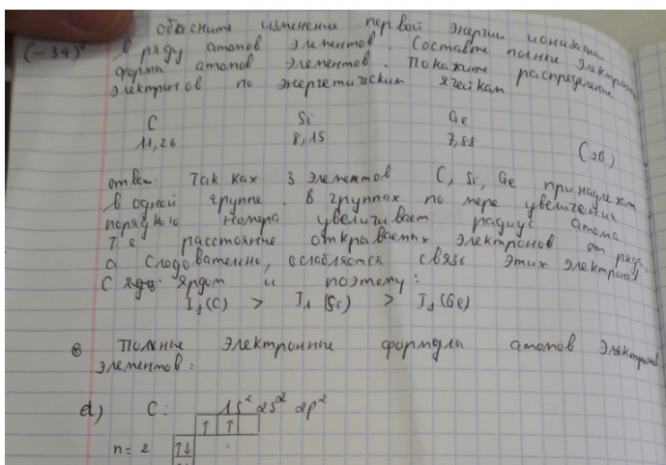 объясните изменение первой энергии ионизации
(-34) в ряду атомов элементов. Составте полные электрон
форми атомов элементов. Покажите распределение
электронов по энергетическим ячейкам
C Si Ge
11,26 8,15 7,88 (эв)
ответ: Так как 3 элементов C, Si, Ge принадлежат
в одной группе. в группах по мере увеличения
порядкю номера увеличивает радиус атома
т.е расстояние открываемих электронов от ядра,
а следовательно, ослабляется связь этих электронов
с ядром и поэтому:
I₁(C) > I₁(Si) > I₁(Ge)
полные электронние формули атомов
элементов:
d) C: 1s² 2s² 2p²
↑ ↑
n = 2 ↑↓